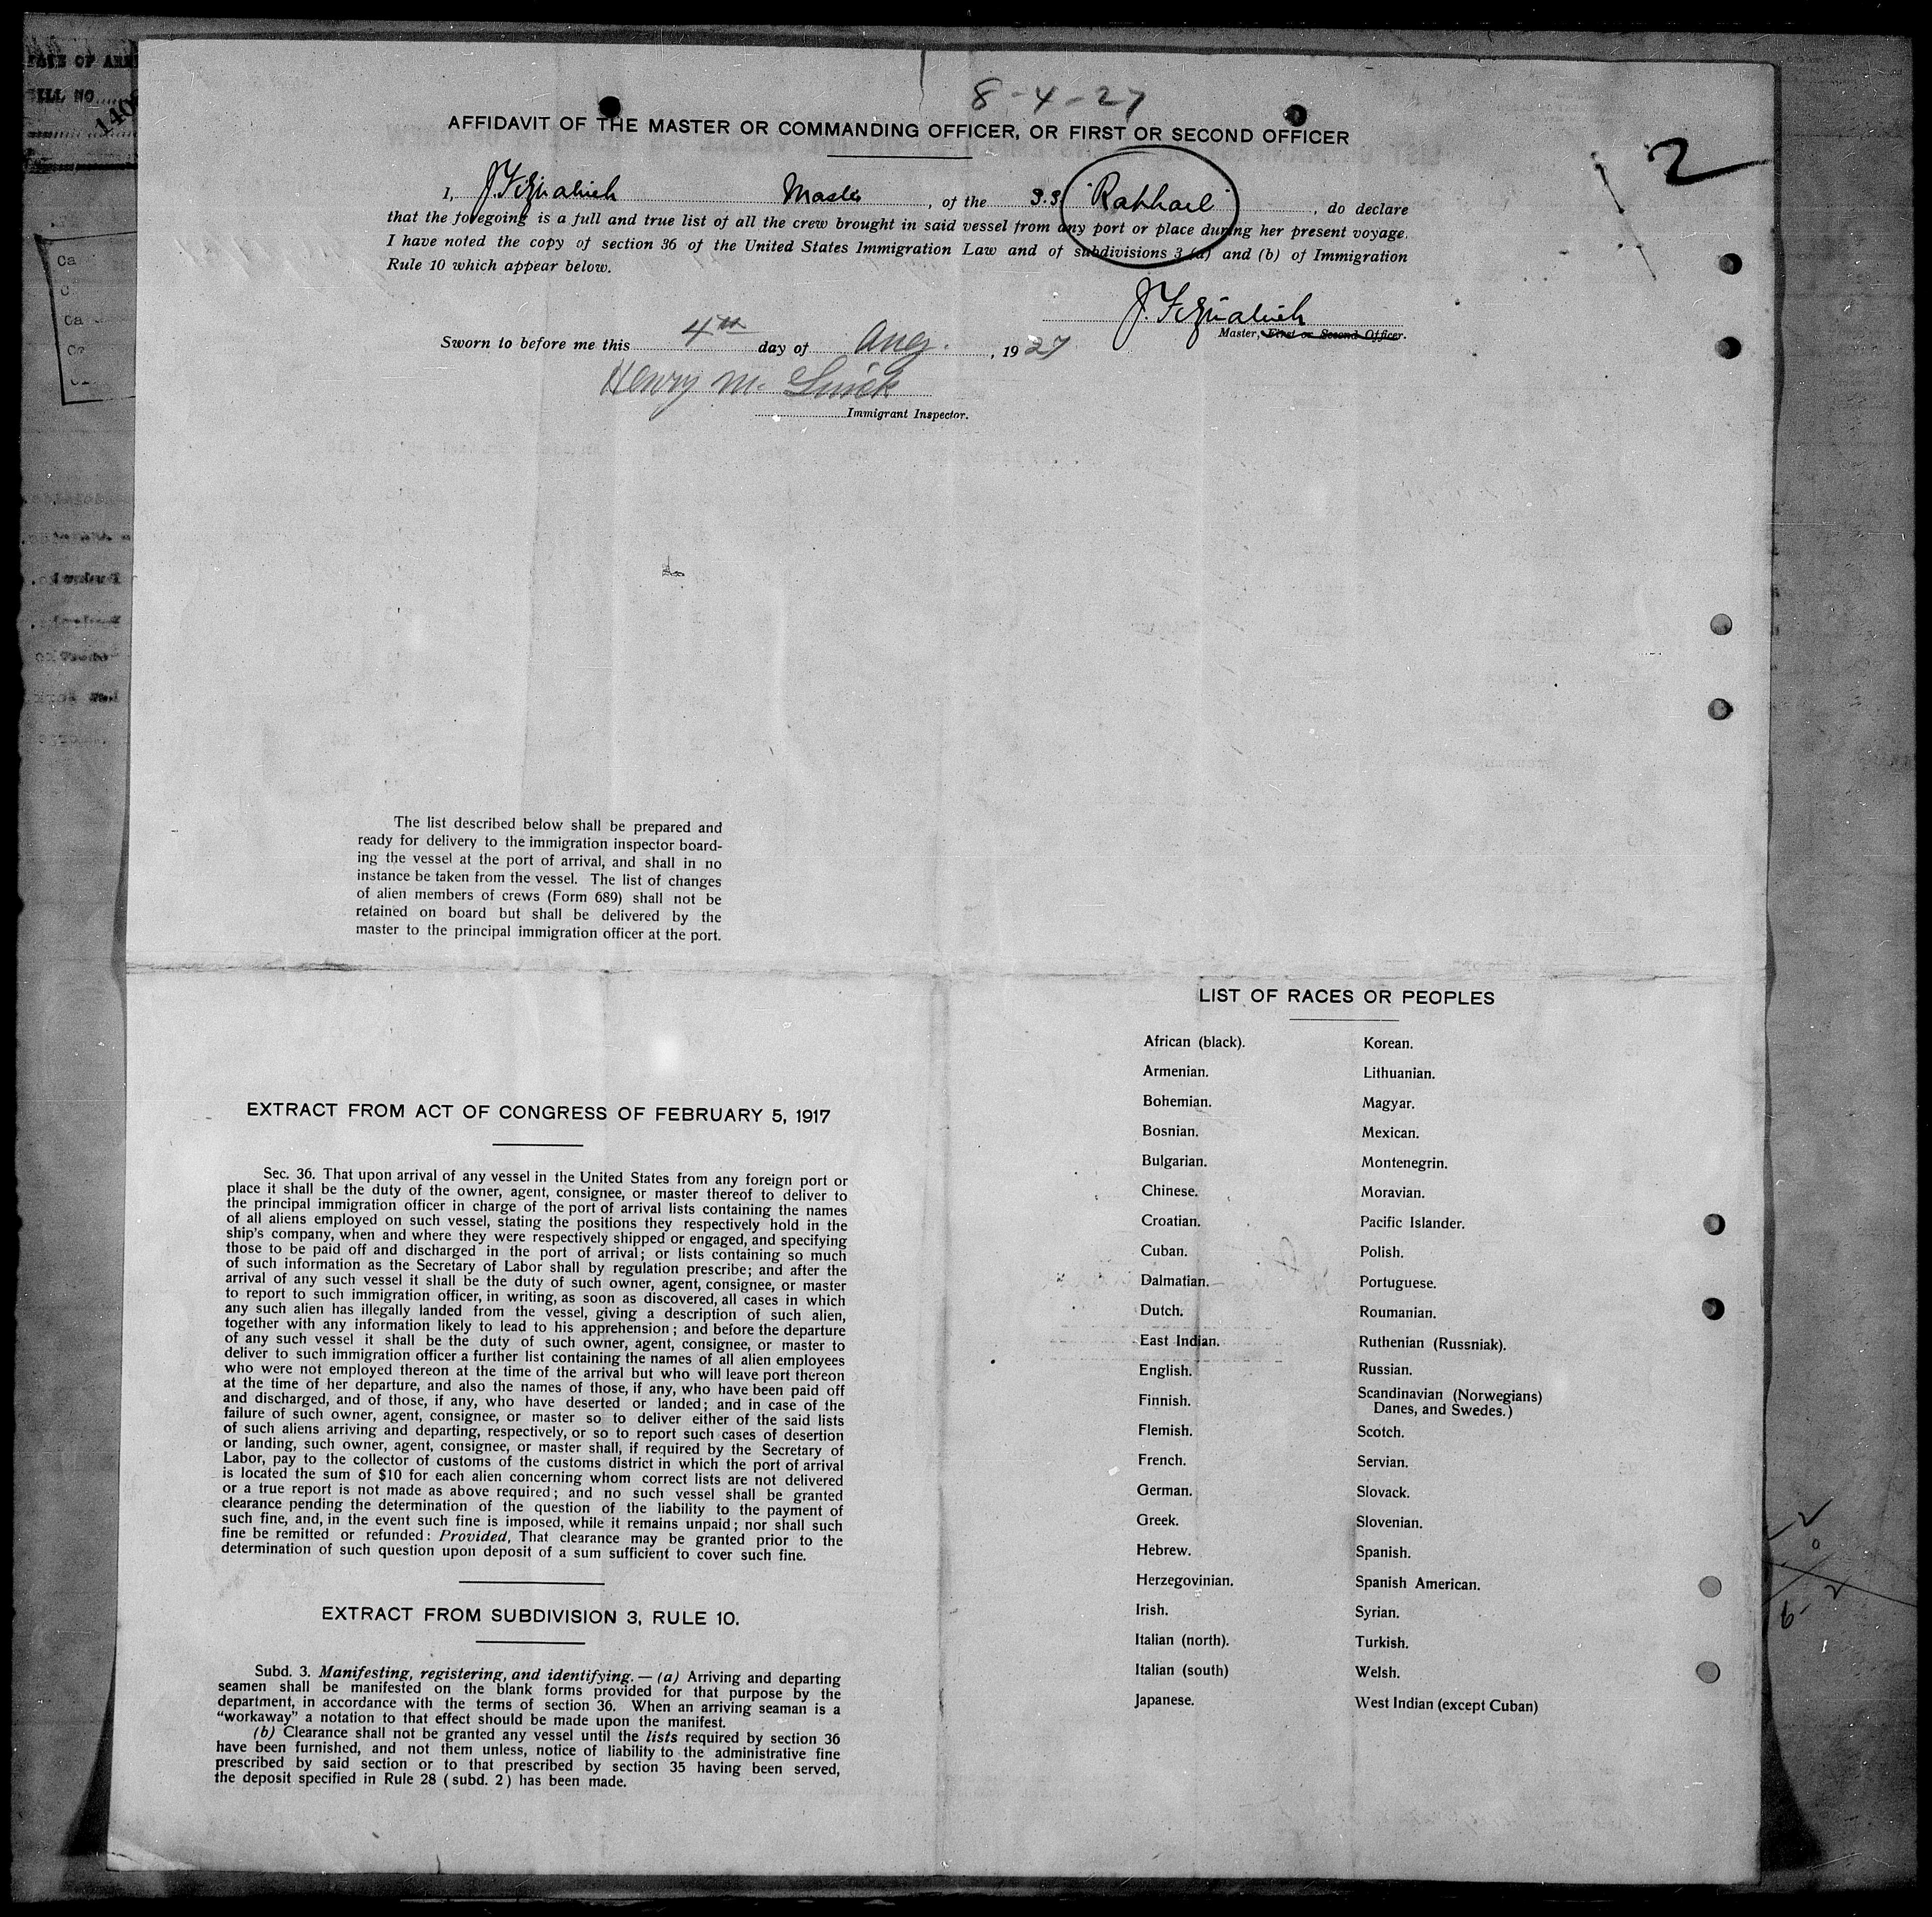 8-4-27
2
AFFIDAVIT OF THE MASTER OR COMMANDING OFFICER, OR FIRST OR SECOND OFFICER
I, Master, of the S.S. "Raphael", do declare
that the foregoing is a full and true list of all the crew brought in said vessel from any port or place during her present voyage.
I have noted the copy of section 36 of the United States Immigration Law and of subdivisions 3 (a) and (b) of Immigration
Rule 10 which appear below.
Master, First or Second Officer.
Sworn to before me this 4th day of Aug., 1927
Henry M.
Immigrant Inspector.
The list described below shall be prepared and
ready for delivery to the immigration inspector board-
ing the vessel at the port of arrival, and shall in no
instance be taken from the vessel. The list of changes
of alien members of crews (Form 689) shall not be
retained on board but shall be delivered by the
master to the principal immigration officer at the port.
EXTRACT FROM ACT OF CONGRESS OF FEBRUARY 5, 1917
Sec. 36. That upon arrival of any vessel in the United States from any foreign port or
place it shall be the duty of the owner, agent, consignee, or master thereof to deliver to
the principal immigration officer in charge of the port of arrival lists containing the names
of all aliens employed on such vessel, stating the positions they respectively hold in the
ship's company, when and where they were respectively shipped or engaged, and specifying
those to be paid off and discharged in the port of arrival; or lists containing so much
of such information as the Secretary of Labor shall by regulation prescribe; and after the
arrival of any such vessel it shall be the duty of such owner, agent, consignee, or master
to report to such immigration officer, in writing, as soon as discovered, all cases in which
any such alien has illegally landed from the vessel, giving a description of such alien,
together with any information likely to lead to his apprehension; and before the departure
of any such vessel it shall be the duty of such owner, agent, consignee, or master to
deliver to such immigration officer a further list containing the names of all alien employees
who were not employed thereon at the time of the arrival but who will leave port thereon
at the time of her departure, and also the names of those, if any, who have been paid off
and discharged, and of those, if any, who have deserted or landed; and in case of the
failure of such owner, agent, consignee, or master so to deliver either of the said lists
of such aliens arriving and departing, respectively, or so to report such cases of desertion
or landing, such owner, agent, consignee, or master shall, if required by the Secretary of
Labor, pay to the collector of customs of the customs district in which the port of arrival
is located the sum of $10 for each alien concerning whom correct lists are not delivered
or a true report is not made as above required; and no such vessel shall be granted
clearance pending the determination of the question of the liability to the payment of
such fine, and, in the event such fine is imposed, while it remains unpaid; nor shall such
fine be remitted or refunded: Provided, That clearance may be granted prior to the
determination of such question upon deposit of a sum sufficient to cover such fine.
EXTRACT FROM SUBDIVISION 3, RULE 10.
Subd. 3. Manifesting, registering, and identifying. — (a) Arriving and departing
seamen shall be manifested on the blank forms provided for that purpose by the
department, in accordance with the terms of section 36. When an arriving seaman is a
"workaway" a notation to that effect should be made upon the manifest.
(b) Clearance shall not be granted any vessel until the lists required by section 36
have been furnished, and not them unless, notice of liability to the administrative fine
prescribed by said section or to that prescribed by section 35 having been served,
the deposit specified in Rule 28 (subd. 2) has been made.
LIST OF RACES OR PEOPLES
African (black).
Armenian.
Bohemian.
Bosnian.
Bulgarian.
Chinese.
Croatian.
Cuban.
Dalmatian.
Dutch.
East Indian.
English.
Finnish.
Flemish.
French.
German.
Greek.
Hebrew.
Herzegovinian.
Irish.
Italian (north).
Italian (south)
Japanese.
Korean.
Lithuanian.
Magyar.
Mexican.
Montenegrin.
Moravian.
Pacific Islander.
Polish.
Portuguese.
Roumanian.
Ruthenian (Russniak).
Russian.
Scandinavian (Norwegians)
Danes, and Swedes.)
Scotch.
Servian.
Slovack.
Slovenian.
Spanish.
Spanish American.
Syrian.
Turkish.
Welsh.
West Indian (except Cuban)